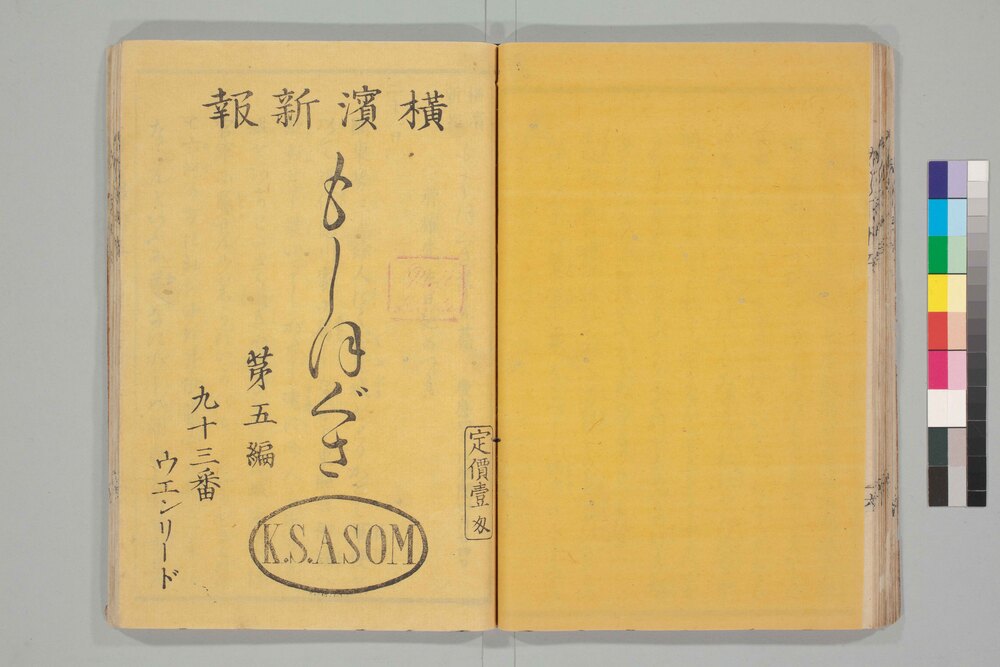 横濱新報
もしほぐさ
第五編
九十三番
ウエンリード
定價壹匁
K.S.ASOM